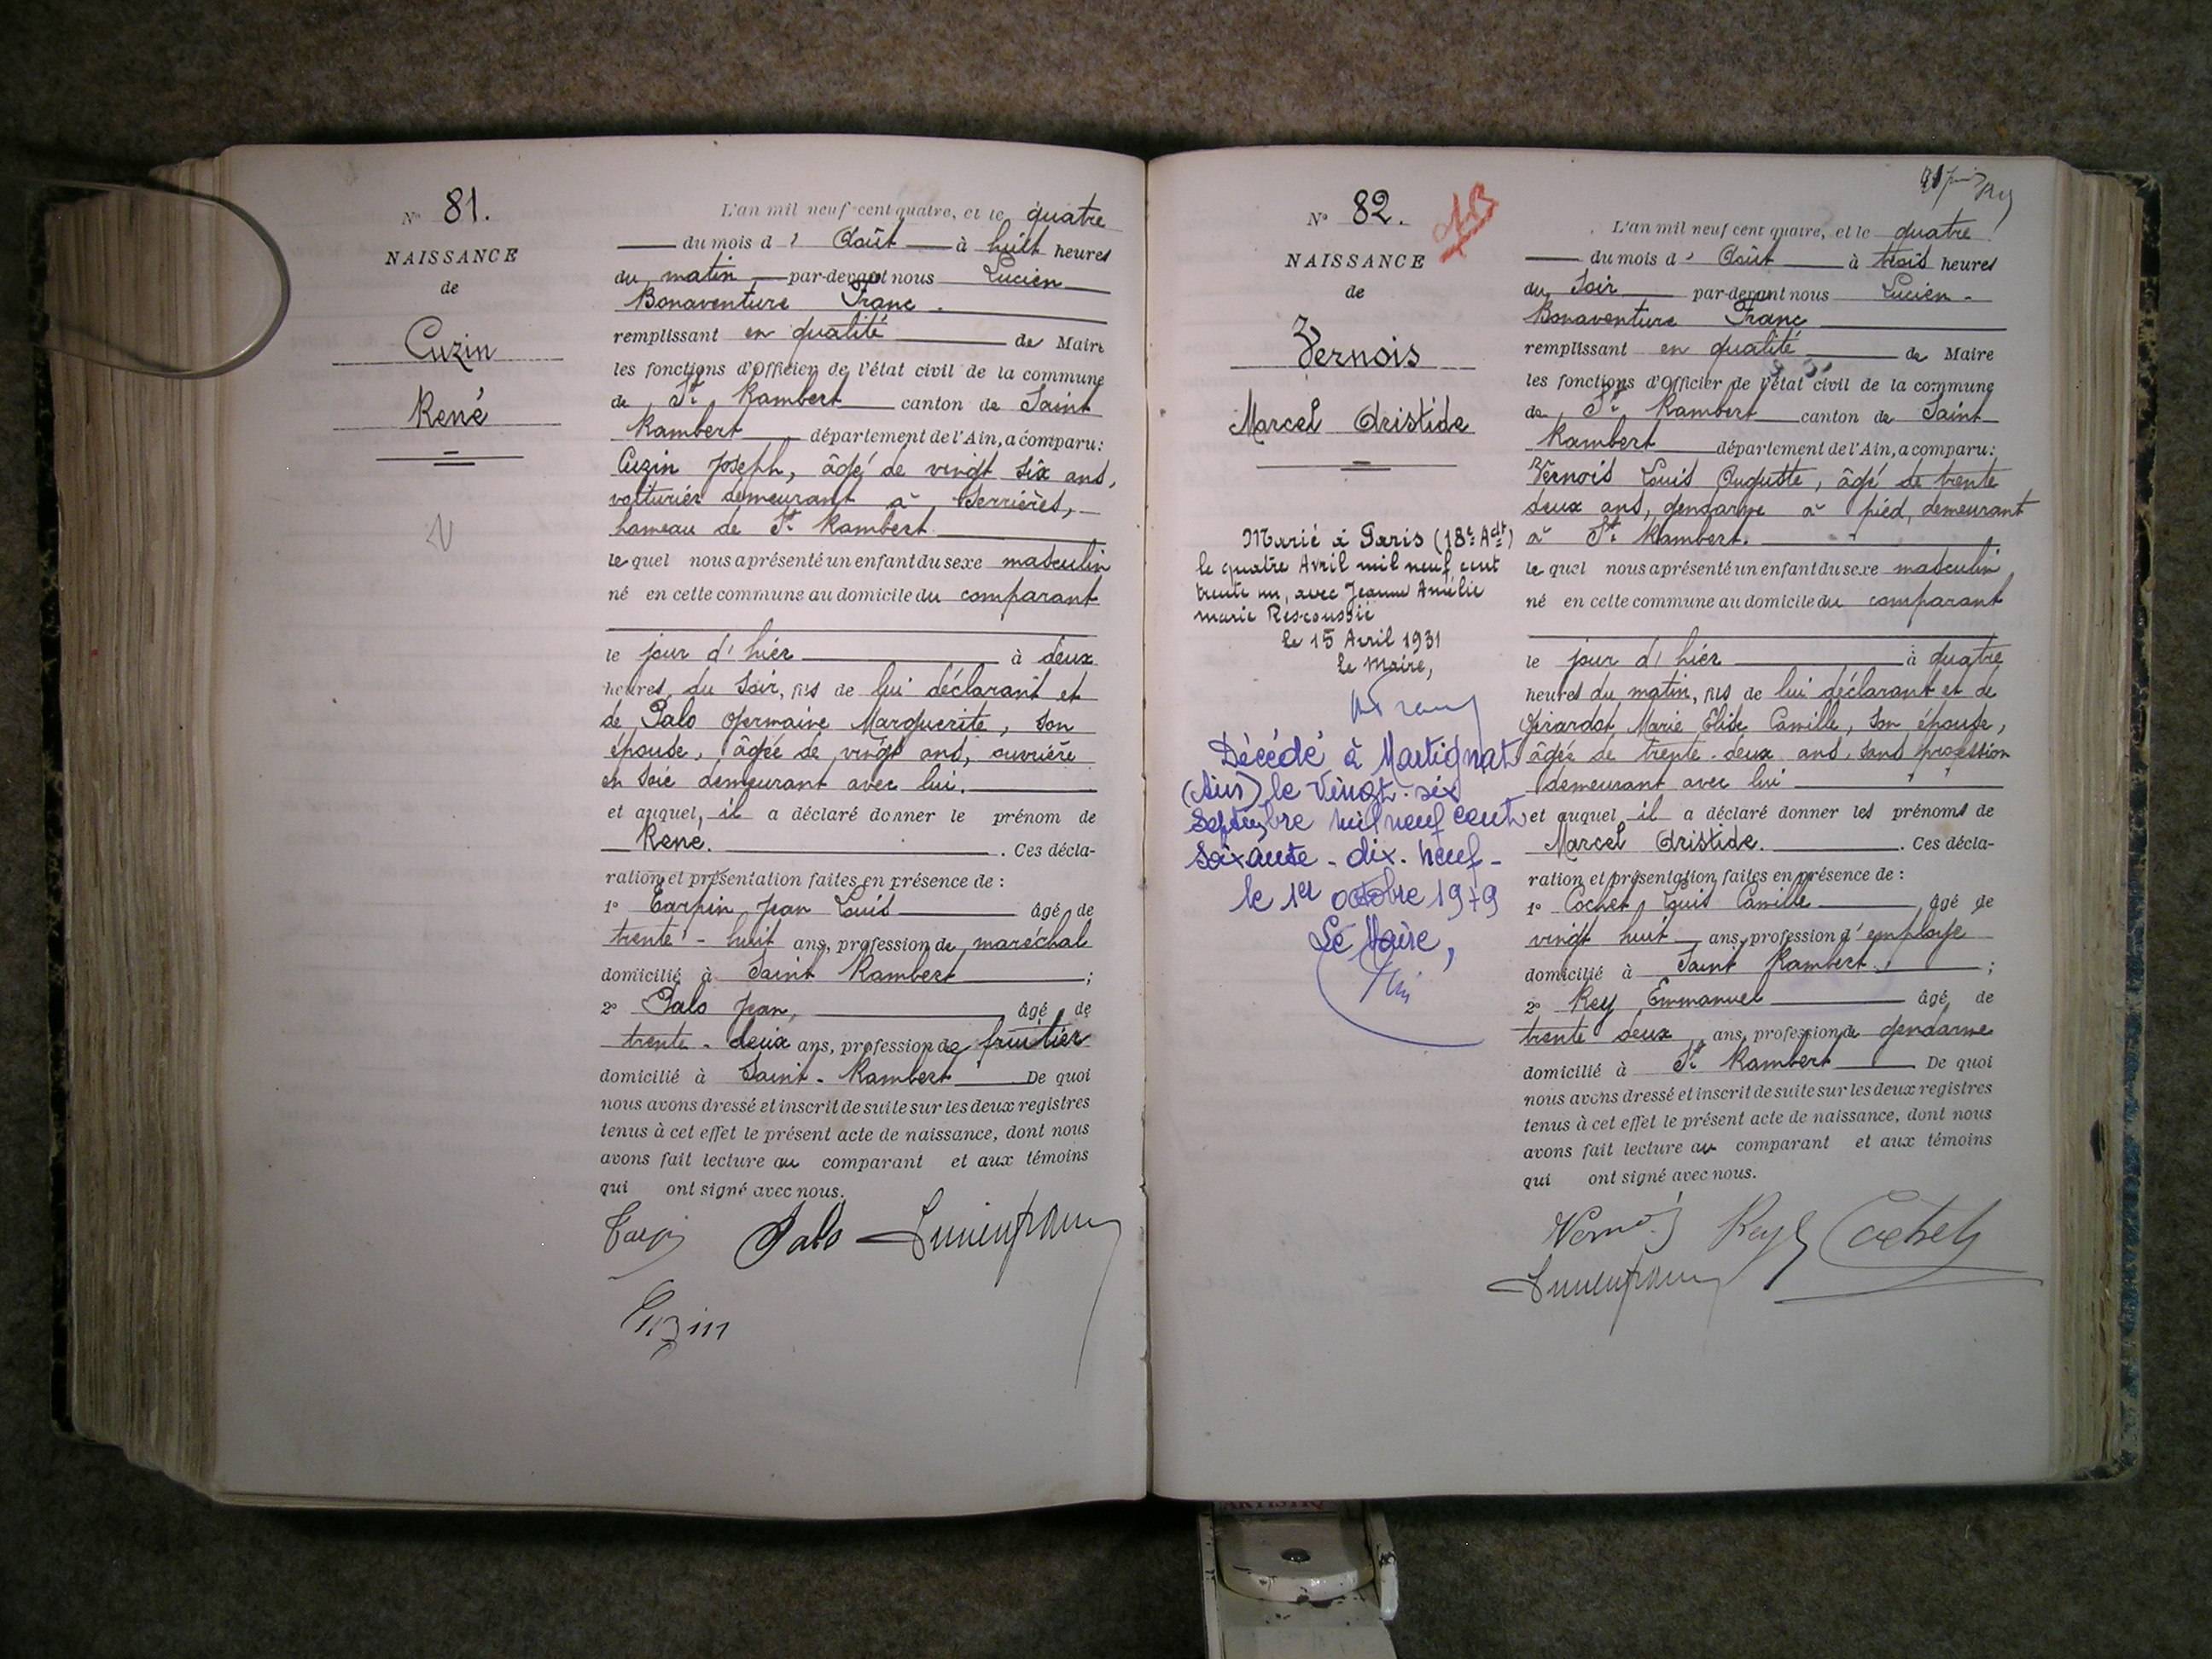 N° 81.
NAISSANCE
de
Cuzin
René
L'an mil neuf cent quatre, et le quatre
du mois d' Août à huit heures
du matin par-devant nous Lucien
Bonaventure Franc.
remplissant en qualité de Maire
les fonctions d'Officier de l'état civil de la commune
de St Rambert canton de Saint
Rambert département de l'Ain, a comparu:
Cuzin Joseph, âgé de vingt six ans,
voiturier demeurant à Serrières,
hameau de St Rambert.
le quel nous a présenté un enfant du sexe masculin
né en cette commune au domicile du comparant
le jour d'hier à deux
heures du soir, fils de lui déclarant et
de Palo Germaine Marguerite, son
épouse, âgée de vingt ans, ouvrière
en soie demeurant avec lui.
et auquel, il a déclaré donner le prénom de
René. Ces décla-
ration et présentation faites en présence de :
1° Tarpin Jean Louis âgé de
trente-huit ans, profession de maréchal
domicilié à Saint Rambert ;
2° Palo Jean, âgé de
trente-deux ans, profession de fruitier
domicilié à Saint-Rambert De quoi
nous avons dressé et inscrit de suite sur les deux registres
tenus à cet effet le présent acte de naissance, dont nous
avons fait lecture au comparant et aux témoins
qui ont signé avec nous.
Tarpin Palo Lucien Franc
Cuzin
N° 82. AB
NAISSANCE
de
Vernois
Marcel Aristide
Marié à Paris (18e Adt)
le quatre Avril mil neuf cent
trente un, avec Jeanne Amélie
Marie
le 15 Avril 1931
Le Maire,
Franc
Décédé à Martignat
(Ain) le Vingt-six
Septembre mil neuf cent
Soixante-dix-neuf-
le 1er octobre 1979
Le Maire,
L'an mil neuf cent quatre, et le quatre
du mois d' Août à trois heures
du soir par-devant nous Lucien-
Bonaventure Franc
remplissant en qualité de Maire
les fonctions d'Officier de l'état civil de la commune
de St Rambert canton de Saint
Rambert département de l'Ain, a comparu:
Vernois Louis Auguste, âgé de trente
deux ans, gendarme à pied, demeurant
à St Rambert.
le quel nous a présenté un enfant du sexe masculin
né en cette commune au domicile du comparant
le jour d'hier à quatre
heures du matin, fils de lui déclarant et de
Girardot Marie Elise Camille, son épouse,
âgée de trente-deux ans, sans profession
demeurant avec lui
et auquel il a déclaré donner les prénoms de
Marcel Aristide. Ces décla-
ration et présentation faites en présence de :
1° Cochet Louis Camille âgé de
vingt huit ans, profession d'employé
domicilié à Saint Rambert ;
2° Rey Emmanuel âgé de
trente deux ans, profession de gendarme
domicilié à St Rambert De quoi
nous avons dressé et inscrit de suite sur les deux registres
tenus à cet effet le présent acte de naissance, dont nous
avons fait lecture au comparant et aux témoins
qui ont signé avec nous.
Vernois Rey Cochet
Lucien Franc